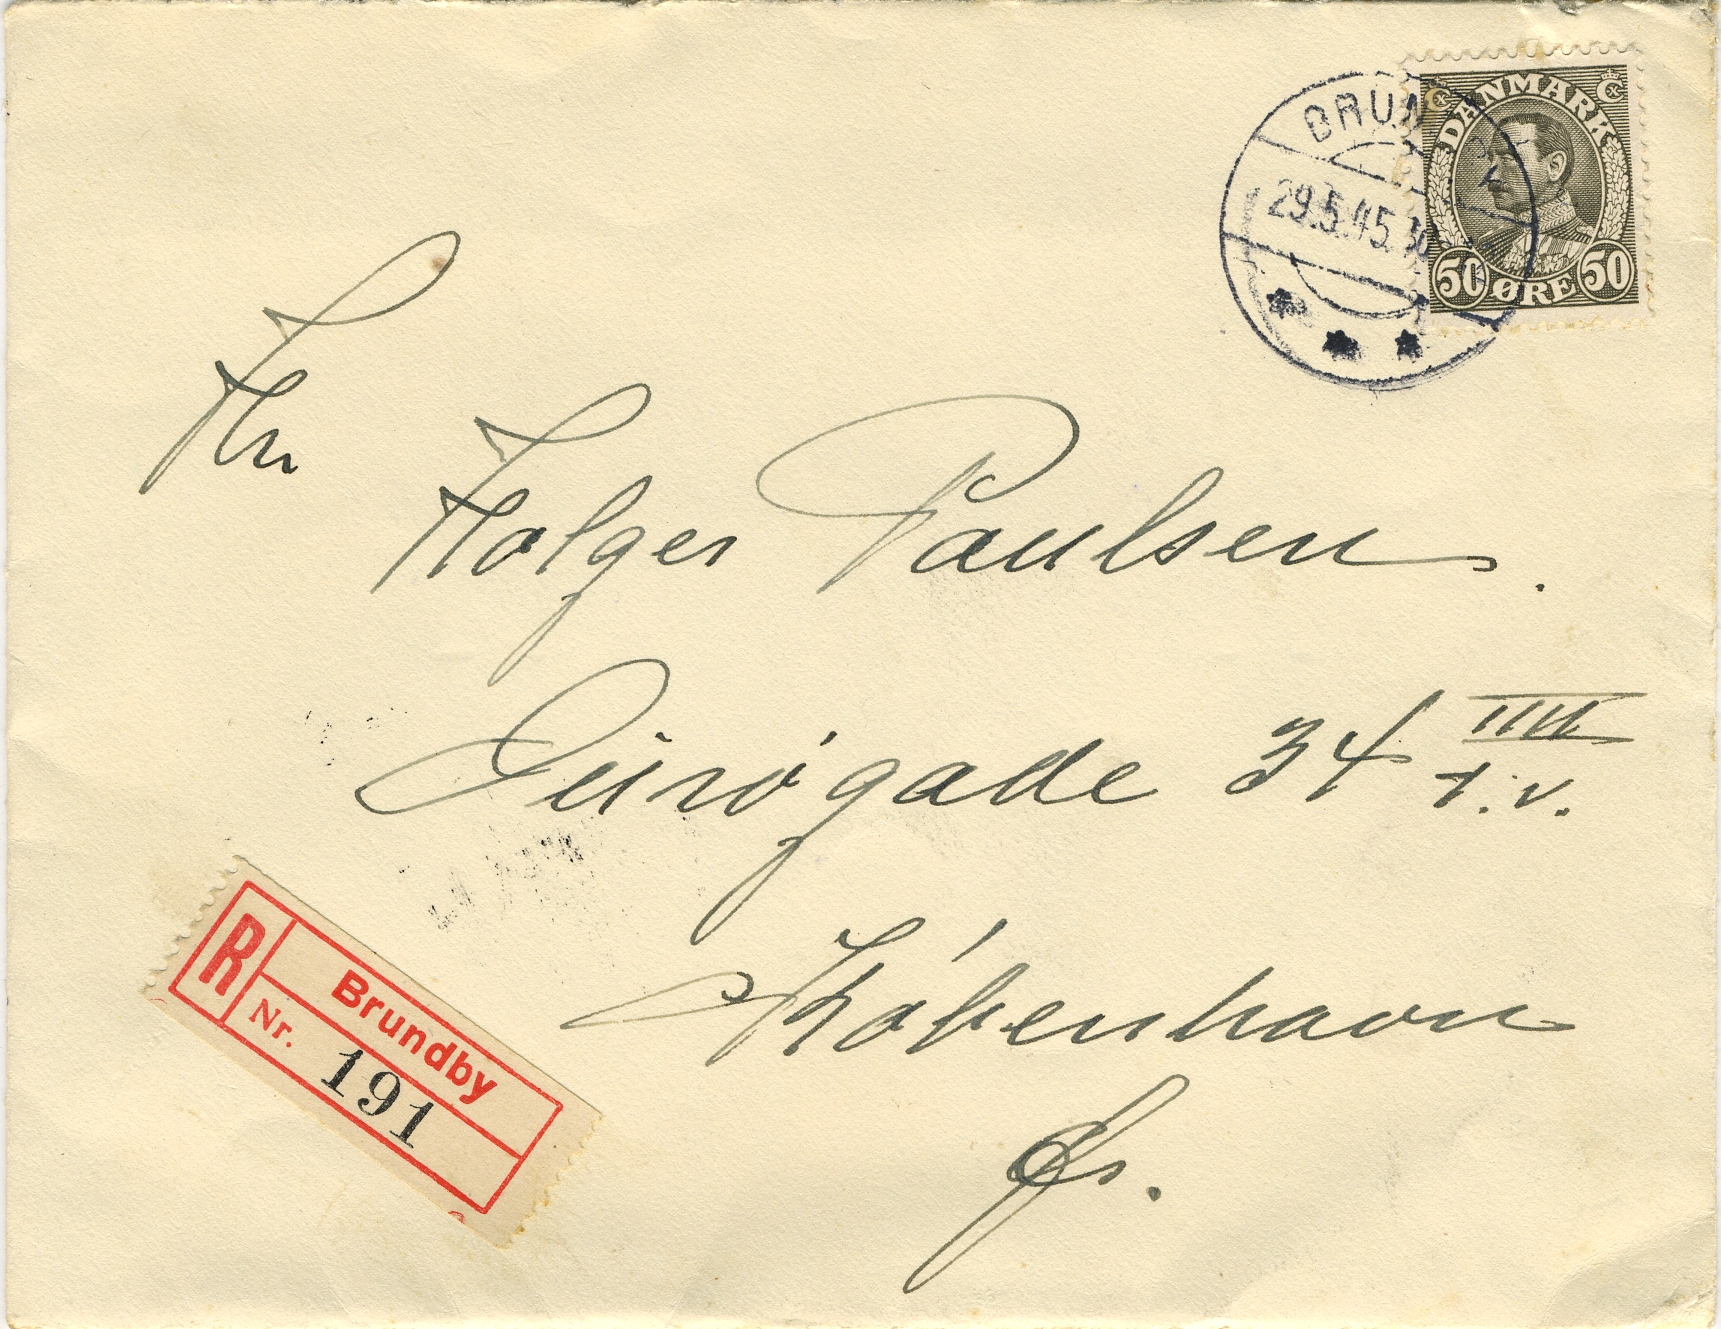 DANMARK
C C
50 ØRE 50
BRUN
29.5.45.
Hr.
Holger Paulsen.
Lurøgade 34 IIII
t.v.
København
Ø.
R
Brundby
Nr. 191